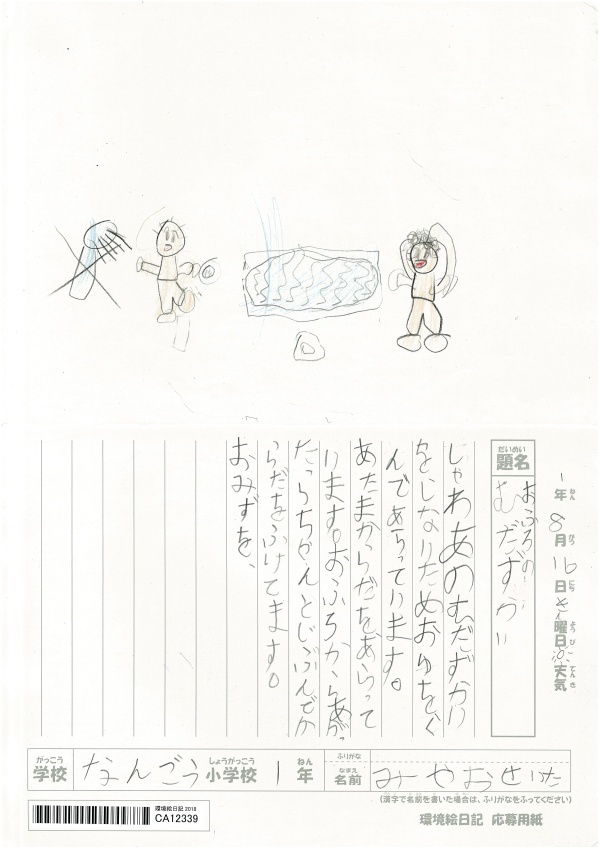 1年 8月 16日 曜日 天気
ねん がつ にち ようび てんき
だいめい
題名
おふろの
むだずかい
しゃわあのむだずかい
をしないためおゆをく
んであらっています。
あたまからだをあらって
います。おふろからあがっ
たらちゃんとじぶんでか
らだをふけてます。
おみずを、
がっこう
学校
なんごう
しょうがっこう
小学校
1
ねん
年
ふりがな
なまえ
名前
みやお
(漢字で名前を書いた場合は、ふりがなをふってください)
環境絵日記 2018
CA12339
環境絵日記 応募用紙